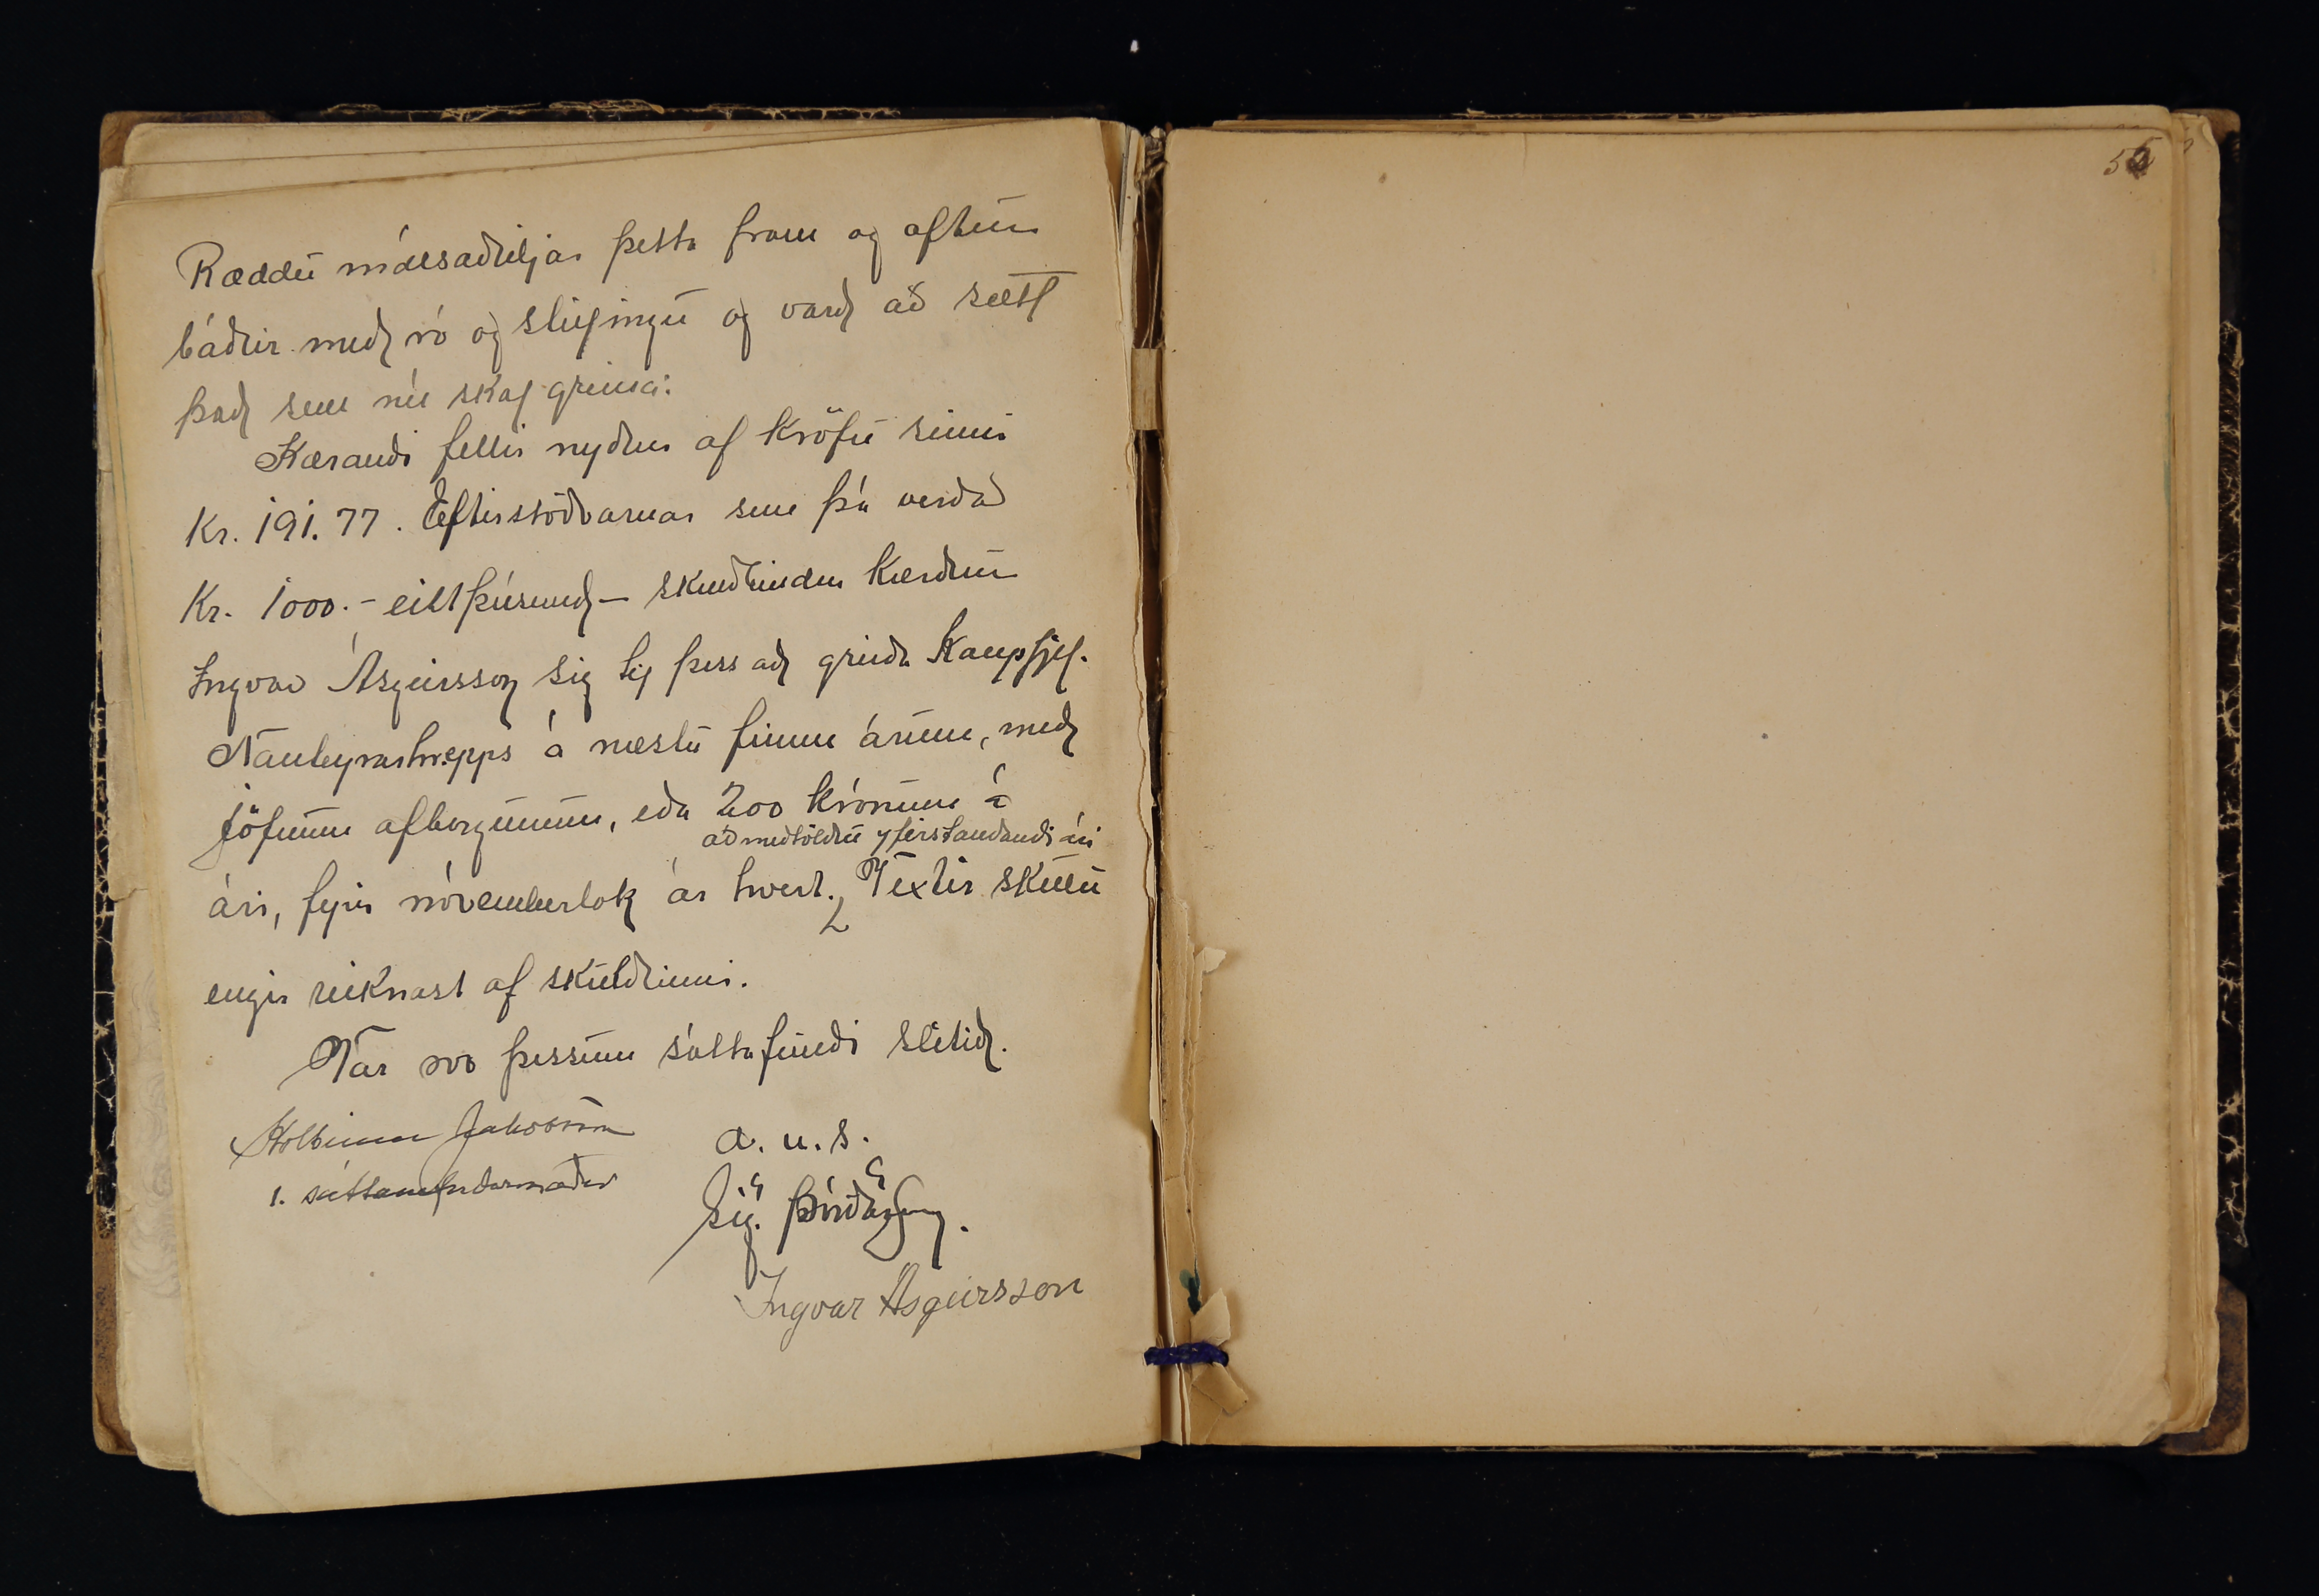 Ræddu málsaðiljar þetta fram og aftur
báðir með ró og stillingu og varð að sætt
það sem nú skal greina:
Kærandi fellir nyður af kröfu sinni
Kr. 191.77. Eftirstöðvarnar sem þá verða
Kr. 1000.- eitt þúsund - skuldbindur kærður
Ingvar Ásgeirsson sig til þess að greiða Kaupfjel.
Nauteyrarhrepps á næstu fimm árum, með
jöfnum afborgunum, eða 200 krónum á
að meðtöldu yfirstandandi ári
ári, fyrir nóvemberlok ár hvert. Vextir skulu
engir reiknast af skuldinni.
Var svo þessum sáttafundi slitið.
Kolbeinn Jakobsson
a. u. s.
1. sáttanefndarmaður
Sig. Þórðarson.
Ingvar Ásgeirsson